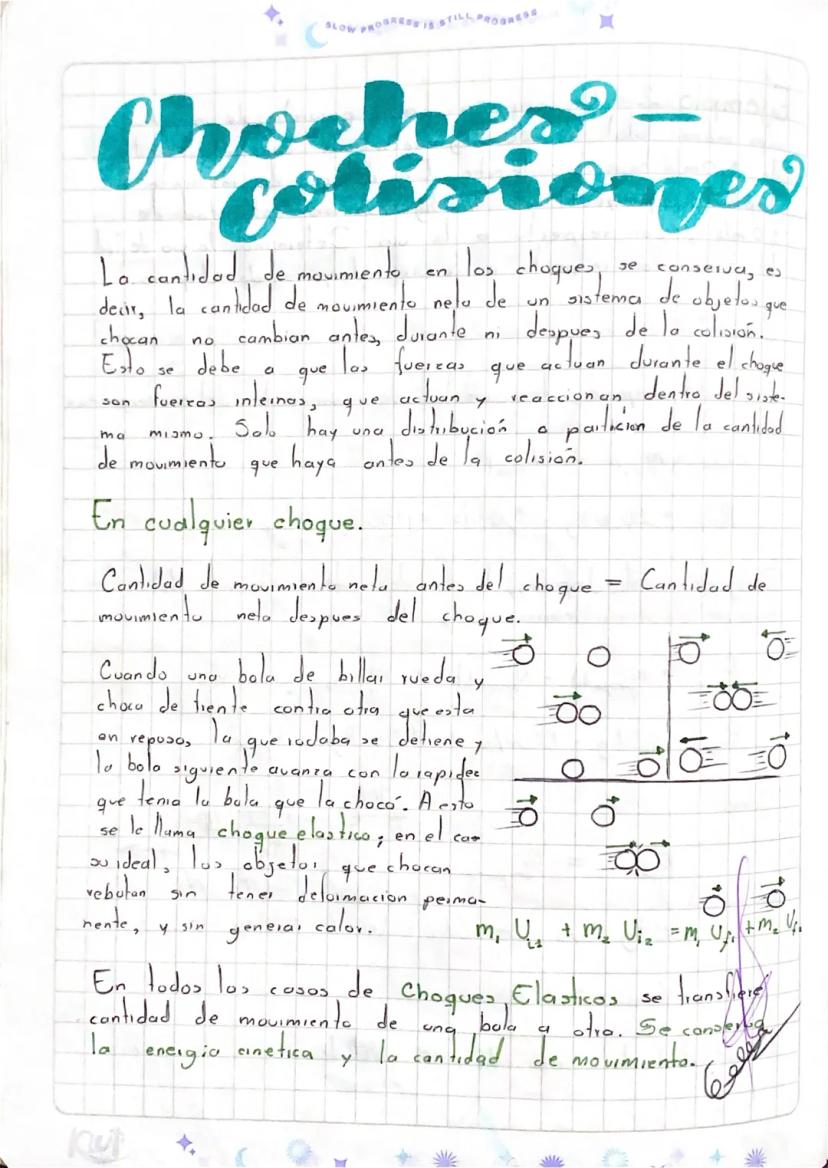 SLOW PROGRESS IS STILL PROGRESS
Choches -
colisiones
La cantidad de movimiento en los choques, se conserva, es
decir, la cantidad de movimiento neta de un sistema de objetos que
chocan no cambian antes, durante ni despues de la colisión.
Esto se debe a que las fuerzas que actuan durante el choque
son fuerzas internas, que actuan y reaccionan dentro del siste-
ma mismo. Solo hay una distribución o particion de la cantidad
de movimiento que haya antes de la colisión.
En cualquier choque.
Cantidad de movimiento neta antes del choque = Cantidad de
movimiento neta despues del choque.
Cuando una bola de billar rueda y
choca de frente contra otra que esta
en reposo, la que rodaba se detiene y
la bola siguiente avanza con la rapidez
que tenia la bola que la chocó. A esto
se le llama choque elastico; en el ca-
so ideal, los objetos que chocan
rebotan sin tener deformacion perma-
nente, y sin generar calor.
m₁ Ui₁ + m₂ Ui₂ = m₁ Uf₁ + m₂ Uf₂
En todos los casos de Choques Elasticos se transfiere
cantidad de movimiento de una bola a otra. Se conserva
la energia cinetica y la cantidad de movimiento.